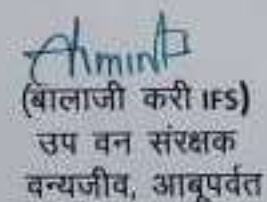 (बालाजी करी IFS)
उप वन संरक्षक
वन्यजीव, आबूपर्वत